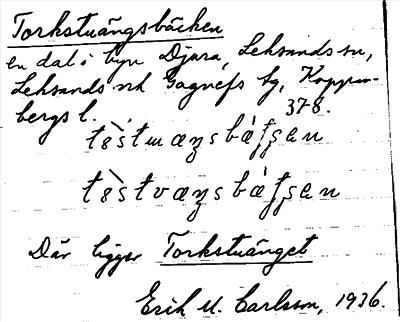 Torkstuängsbäcken
en dal i byn Djura, Leksands sn,
Leksands och Gagnefs tg, Koppar-
bergs l. 378.
tɵ̀stwæŋsbæ̀ʃʃæn
tɵ̀stvæŋsbæ̀ʃʃæn
Där ligger Torkstuänget
Erik U. Carlsson, 1936.